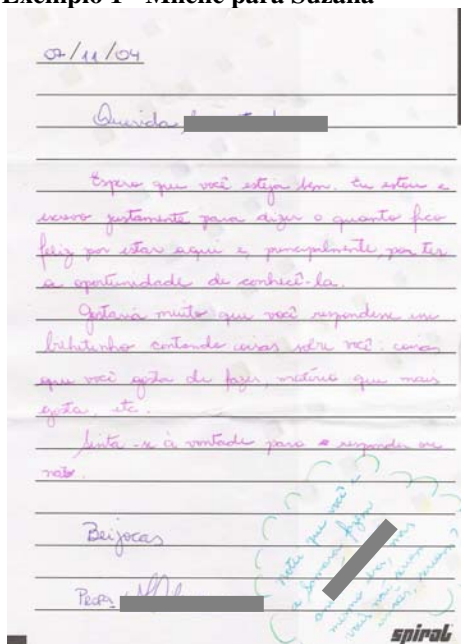 Exemplo 1 - Milene para Suzana
07/11/04
Querida
Espero que você esteja bem. Eu estou e
escrevo justamente para dizer o quanto fico
feliz por estar aqui e, principalmente, por ter
a oportunidade de conhecê-la.
Gostaria muito que você respondesse esse
bilhetinho contando coisas sobre você: coisas
que você gosta de fazer, matéria que mais
gosta, etc.
Sinta-se à vontade para responder ou
não.
Beijocas
Profa
Notei que você e
a
mesmo
vocês não
spiral